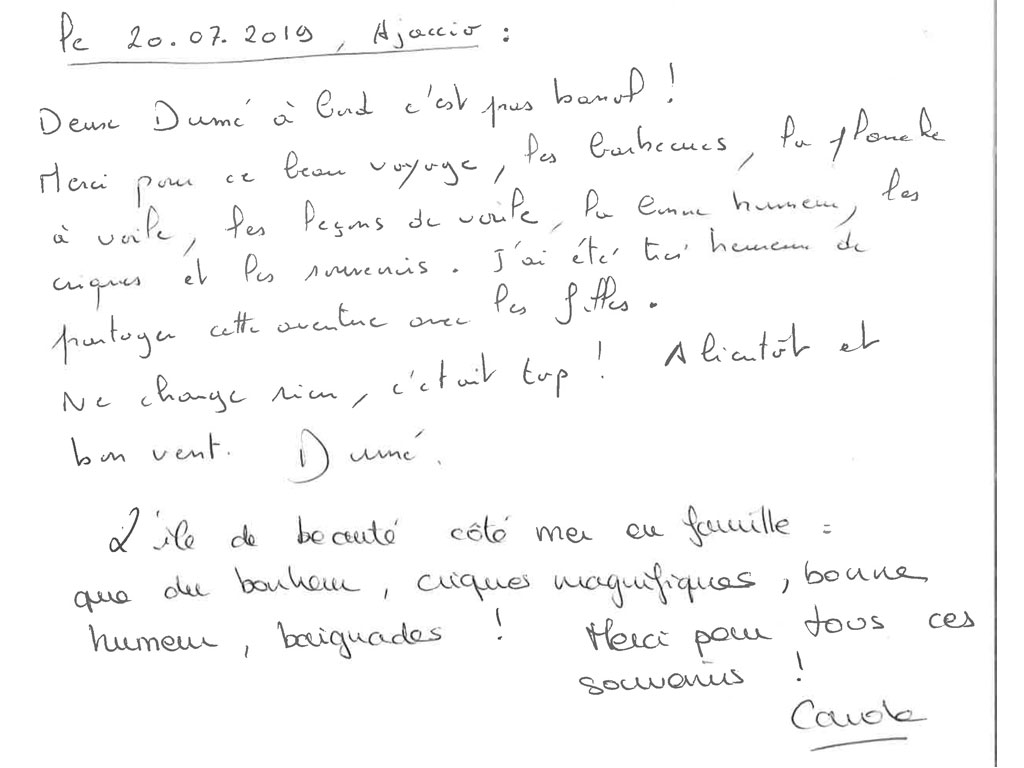 Le 20.07.2019, Ajaccio :
Deux Dumé à bord c'est pas banal !
Merci pour ce beau voyage, les barbecues, la planche
à voile, les leçons de voile, la bonne humeur, les
criques et les souvenirs. J'ai été très heureux de
partager cette aventure avec les filles.
Ne change rien, c'était top ! A bientôt et
bon vent. Dumé.
L'île de beauté côté mer en famille :
que du bonheur, criques magnifiques, bonne
humeur, baignades ! Merci pour tous ces
souvenirs !
Carole